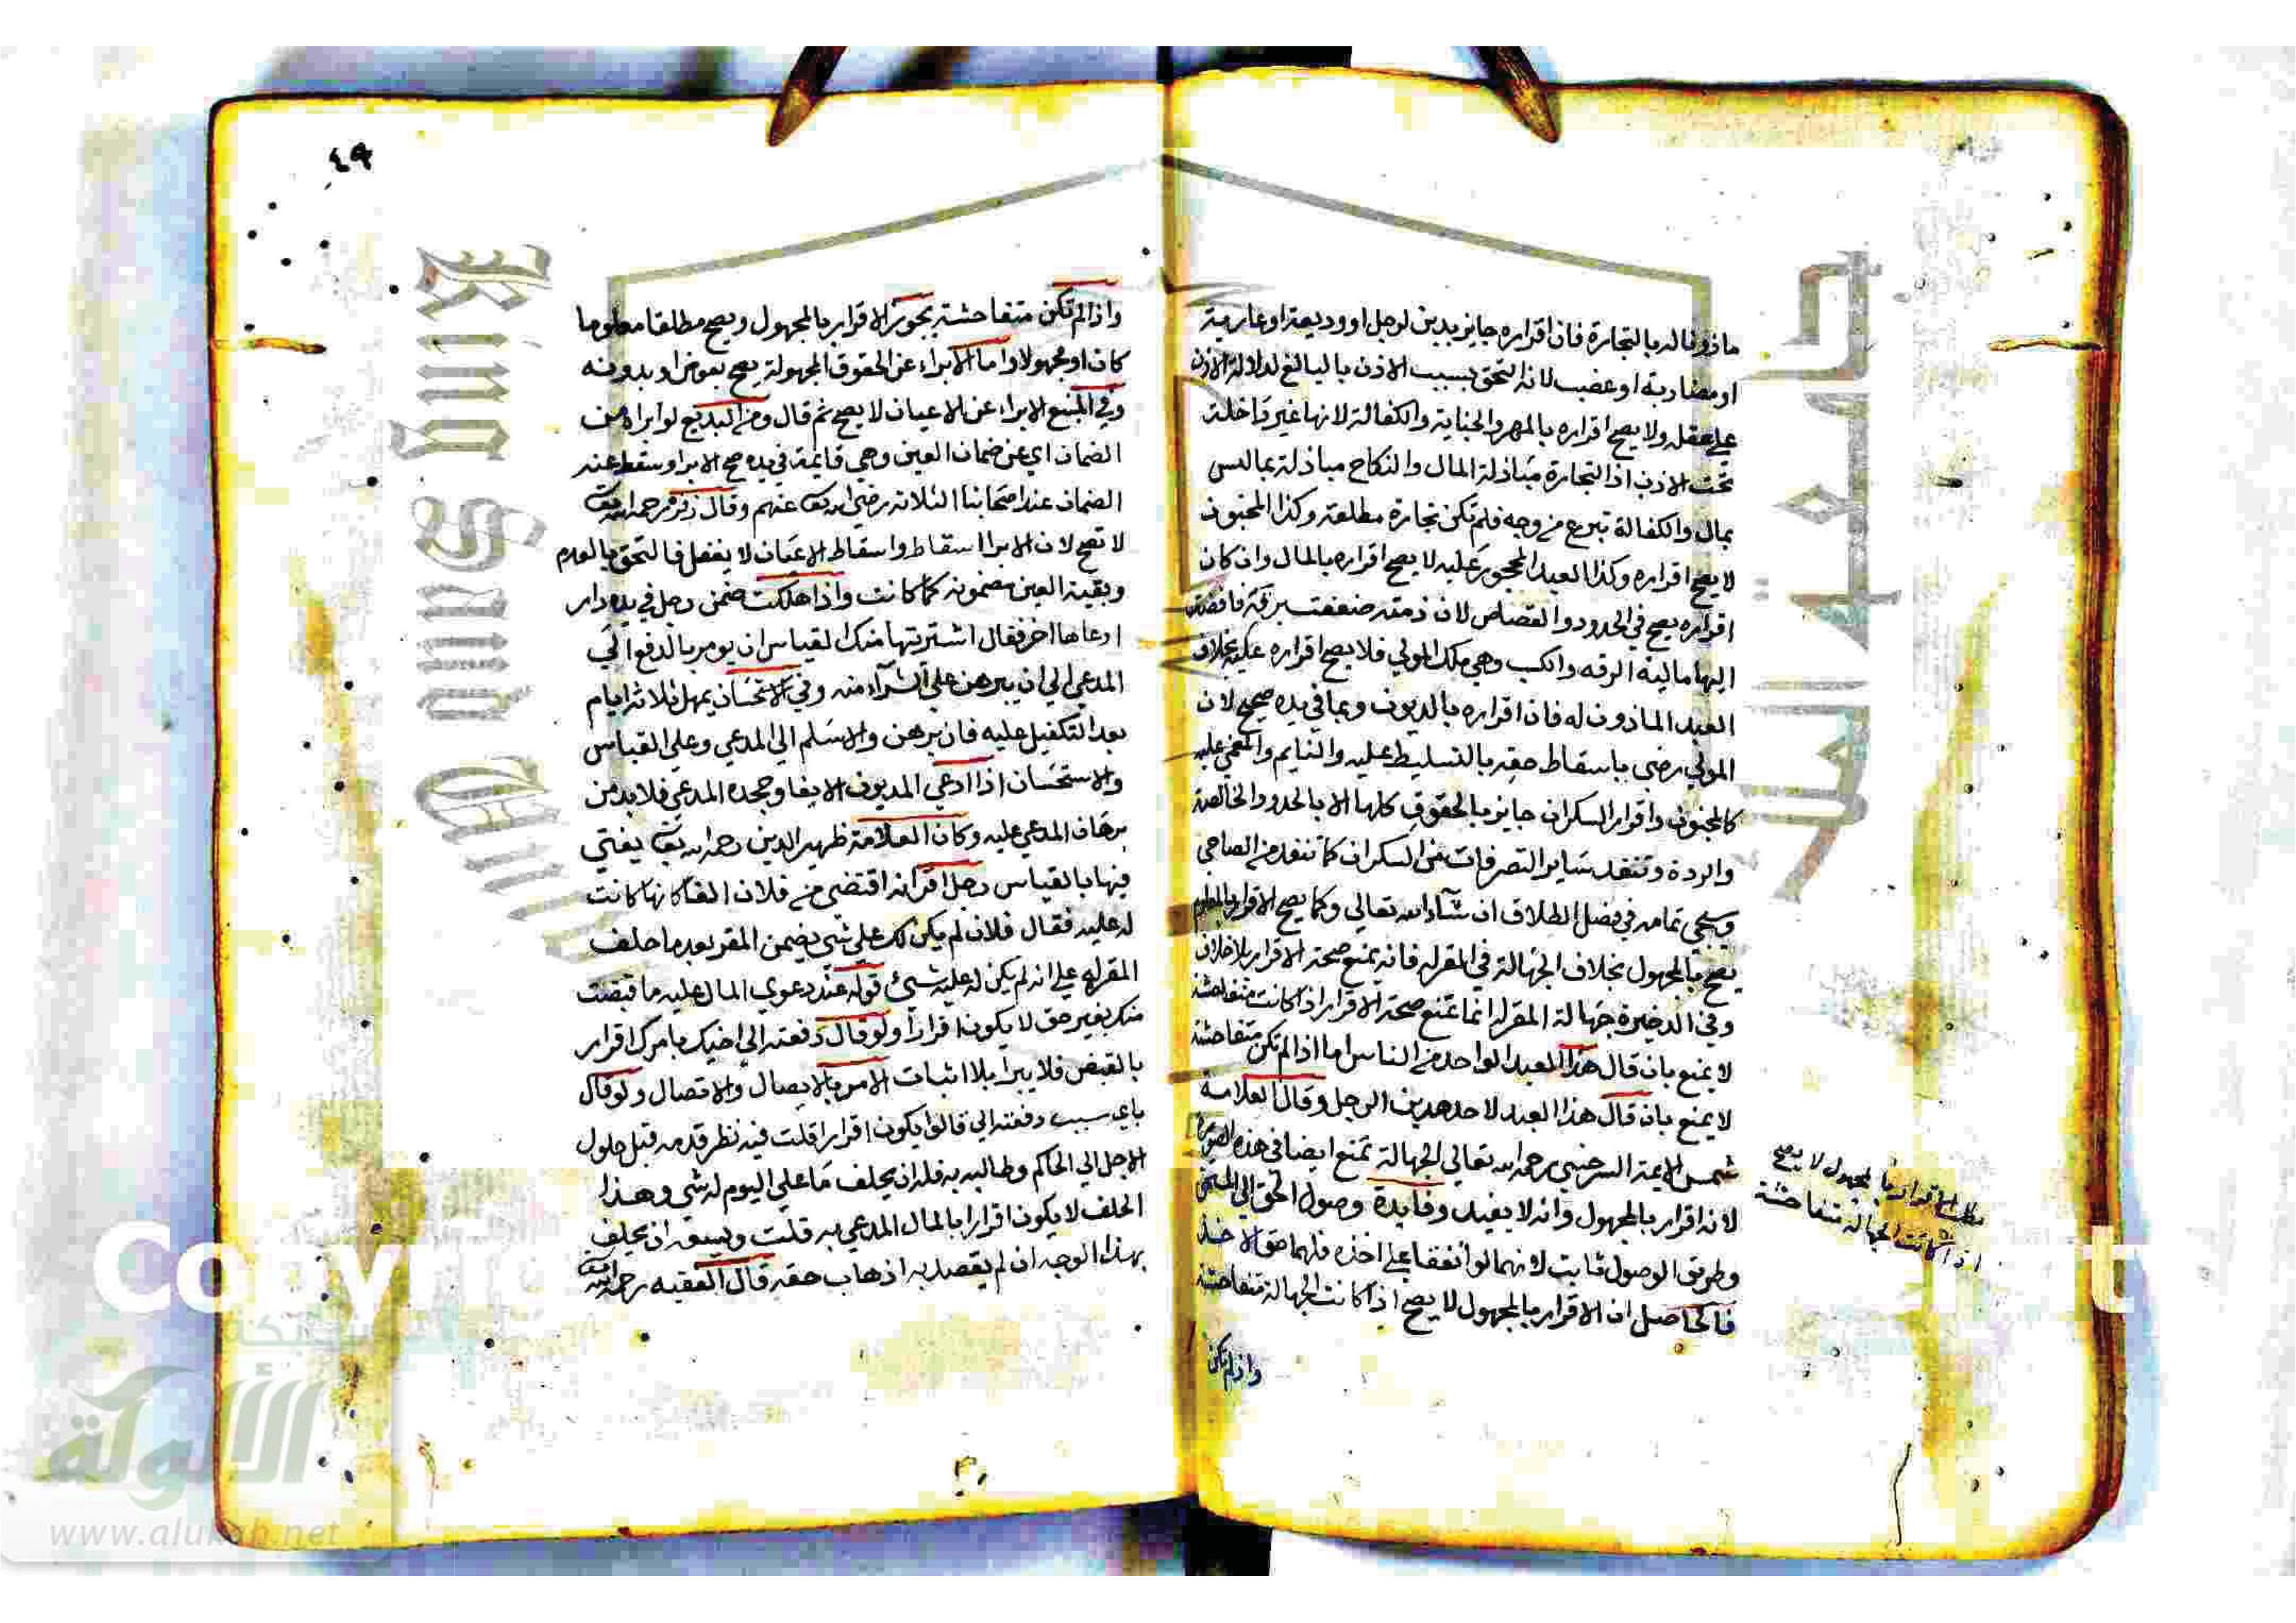 ماذونا له بالتجارة فان اقراره جايز بدين لرجل او وديعة او عارية
او مضاربة او غصب لانه التحق بسبب الاذن بالبالغ لدلالة الاذن
على عقله ولا يصح اقراره بالمهر والجناية والكفالة لانها غير داخلة
تحت الاذن اذ التجارة مبادلة المال والنكاح مبادلة بما ليس
بمال والكفالة تبرع من وجه فلم تكن تجارة مطلقة وكذا المجنون
لا يصح اقراره وكذا العبد المحجور عليه لا يصح اقراره بالمال وان كان
اقراره يصح في الحدود والقصاص لان ذمته ضعفت برقة
اليها مالية الرقه والكسب وهي ملك المولي فلا يصح اقراره عليه بخلاف
العبد الماذون له فان اقراره بالديون وبما في يده صحيح لان
المولي رضى باسقاط حقه بالتسليط عليه والنايم والمغمي عليه
كالمجنون واقرار السكران جايز بالحقوق كلها الا بالحدود الخالصة
والردة وتنفذ ساير التصرفات من السكران كما تنفذ من الصاحي
وسيجي تمامه في فصل الطلاق ان شاء الله تعالي وكما يصح الاقرار بالمعلوم
يصح بالمجهول بخلاف الجهالة في المقر له فانه يمنع صحة الاقرار بلا خلاف
وفي الدخيرة جهالة المقر له انما تمنع صحة الاقرار اذا كانت متفاحشة
لا يمنع بان قال هذا العبد لواحد من الناس اما اذا لم تكن متفاحشة
لا يمنع بان قال هذا العبد لاحد هدين الرجل وقال العلامة
شمس الايمة السرخسي رحمه الله تعالي الجهالة تمنع ايضا في هذه الصورة
لانه اقرار بالمجهول وانه لا يفيد وفايدة وصول الحق الي المستحق
وطريق الوصول ثابت لانهما لو اتفقا على اخذه فلهما حق الاخذ
فالحاصل ان الاقرار بالمجهول لا يصح اذا كانت الجهالة متفاحشة
واذا لم تكن
مطلب الاقرار بالمجهول لا يصح
اذا كانت الجهالة متفاحشة
٤٩
واذا لم تكن متفاحشة يجوز الاقرار بالمجهول ويصح مطلقا معلوما
كان او مجهولا واما الابراء عن الحقوق المجهولة يصح بعوض او بدونه
وفي المنبع الابراء عن الاعيان لا يصح ثم قال ومن البديع لو ابراه من
الضمان اي عن ضمان العين وهي قايمة في يده صح الابرا وسقط عنه
الضمان عند اصحابنا الثلاثة رضي الله تعالى عنهم وقال زفر رحمه الله تعالى
لا تصح لان الابرا اسقاط واسقاط الاعيان لا يعقل فالتحق بالعدم
وبقيت العين مضمونة كما كانت واذا هلكت ضمن رجل في يده دار
ادعاها اخر فقال اشتريتها منك القياس ان يومر بالدفع الى
المدعي الي ان يبرهن علي الشراء منه وفي الاستحسان يمهل ثلاثة ايام
بعد التكفيل عليه فان برهن والا سلم الي المدعي وعلى القياس
والاستحسان اذا ادعي المديون الايفا وجحده المدعي فلا بد من
برهان المدعي عليه وكان العلامة ظهير الدين رحمه الله تعالى يفتي
فيها بالقياس رجل اقر انه اقتضى من فلان الفا كانها كانت
له عليه فقال فلان لم يكن لك علي شي يضمن المقر بعد ما حلف
المقر له علي انه لم يكن له عليه شيئ قوله عند دعوي المال عليه ما قبضت
منك بغير حق لا يكون اقرارا ولو قال دفعته الي اخيك بامرك اقرار
بالقبض فلا يبرا بلا اثبات الامر بالايصال والاتصال ولو قال
باي سبب دفعته الي قالوا يكون اقرارا قلت فيه نظر قدمه قبل حلول
الاجل الي الحاكم وطالبه به فله ان يحلف ما علي اليوم له شي وهذا
الحلف لا يكون اقرارا بالمال المدعي به قلت ويسعه ان يحلف
بهذا الوجه ان لم يقصد به اذهاب حقه قال الفقيه رحمه الله
King Saud
جامعة الملك
Copyri
t
شبكة
الألوكة
www.alukah.net